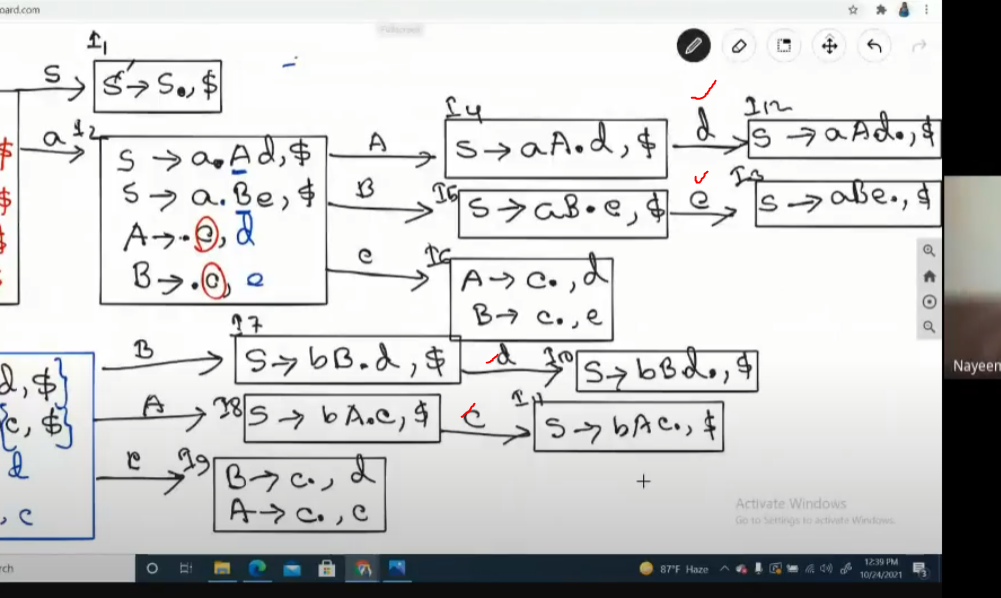 oard.com
I1
S
S' → S., $
a
I2
S → a.Ad, $
S → a.Be, $
A → .c, d
B → .c, e
A
I4
S → aA.d, $
d
I12
S → aAd., $
B
I5
S → aB.e, $
e
I13
S → aBe., $
c
I6
A → c., d
B → c., e
$
$
$
B
I7
S → bB.d, $
d
I10
S → bBd., $
d, $}
A
I8
S → bA.c, $
c
I11
S → bAc., $
c, $}
d
c
I9
B → c., d
A → c., c
, c
Nayeem
Activate Windows
Go to Settings to activate Windows.
rch
87°F Haze
12:39 PM
10/24/2021